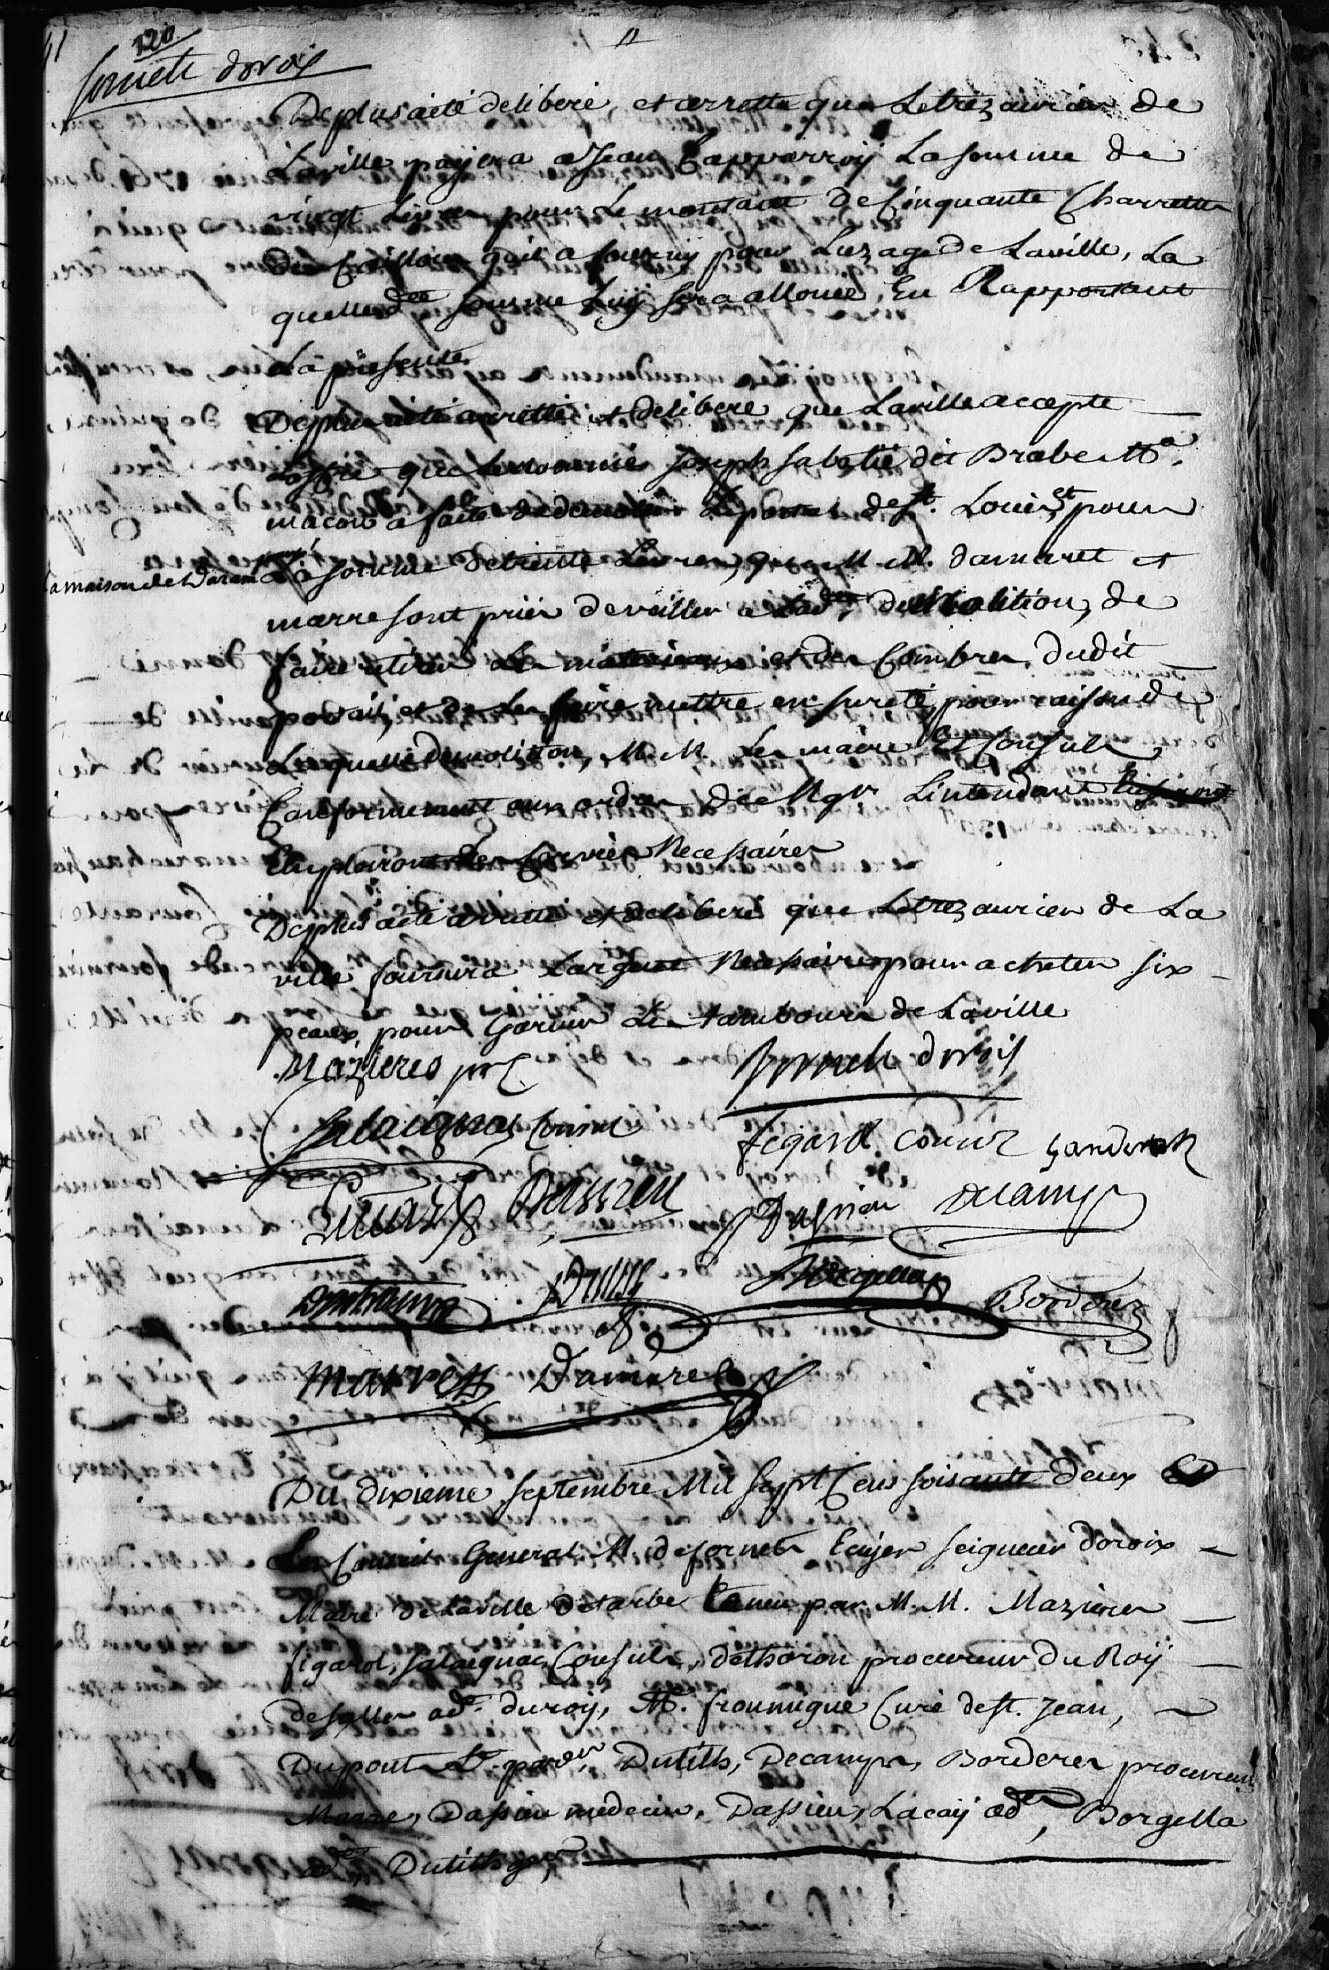 120
Sornets doroix
De plus a eté deliberé, et arretté que Le trezaurier de
Laville payera a Jean Capparroÿ La somme de
vingt Livres pour Le montant de Cinquante Charrettes
de Cailloux quil a fourny pour Luzage de Laville, La
quelle de somme Luÿ sera allouée, En Rapportant
La présente
De plus a eté arretté et deliberé que Laville accepte
Loffre que Le nommé Joseph sabatié dit Brabe Me.
macon a faite de demolir Le portail de st. Louis, et pour
La somme de trente Livres, que M. M. damaret et
La maison de Darané
marre sont priés de veiller a Lade. demolition, de
faire retirer Les materiaux et des Combres dudit
portail, et de Les faire mettre en sureté, pour raison de
Laquelle demolition, M. M. Les maire Et Consuls
Conformement aux ordres de Mgr Lintendant
Employeront Les Corvées Necessaires
De plus a eté arretté et deliberé que Le trezaurier de La
ville fournira Largent Necessaire pour acheter six
peaux pour Garnir Les tambours de Laville
Mazieres
Sornets doroix
Salaignac Consul
figarol Consul
Dassieu
Dassieu
Decamps
Dutilh
Borgella
Borderes
Marre
Damaret
Du dixieme septembre Mil sept Cens soisante deux
En Conseil General M. de sornets Ecuyer seigneur doroix
Maire de Laville de tarbe tenu par M. M. Mazieres
figarol, salaignac Consuls, dethoron procureur du Roÿ
de salles ad. du roy, Mr. froumigue Curé de st. Jean,
Dupont, Dutilh, Decamps, Borderes procureur
Marre, Dassieu medecin, Dassieu, Lacaÿ ad, Borgella
ad, Dutilh